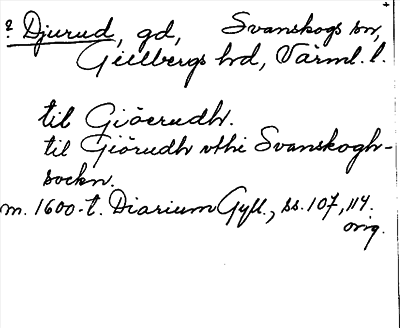 ? Djurud, gd, Svanskogs sn,
Gillbergs hd, Värml. l.
til Giöerudh.
til Giörudh vthi Svanskogh-
sockn.
m. 1600-t. Diarium Gyll., ss. 107, 114.
orig.